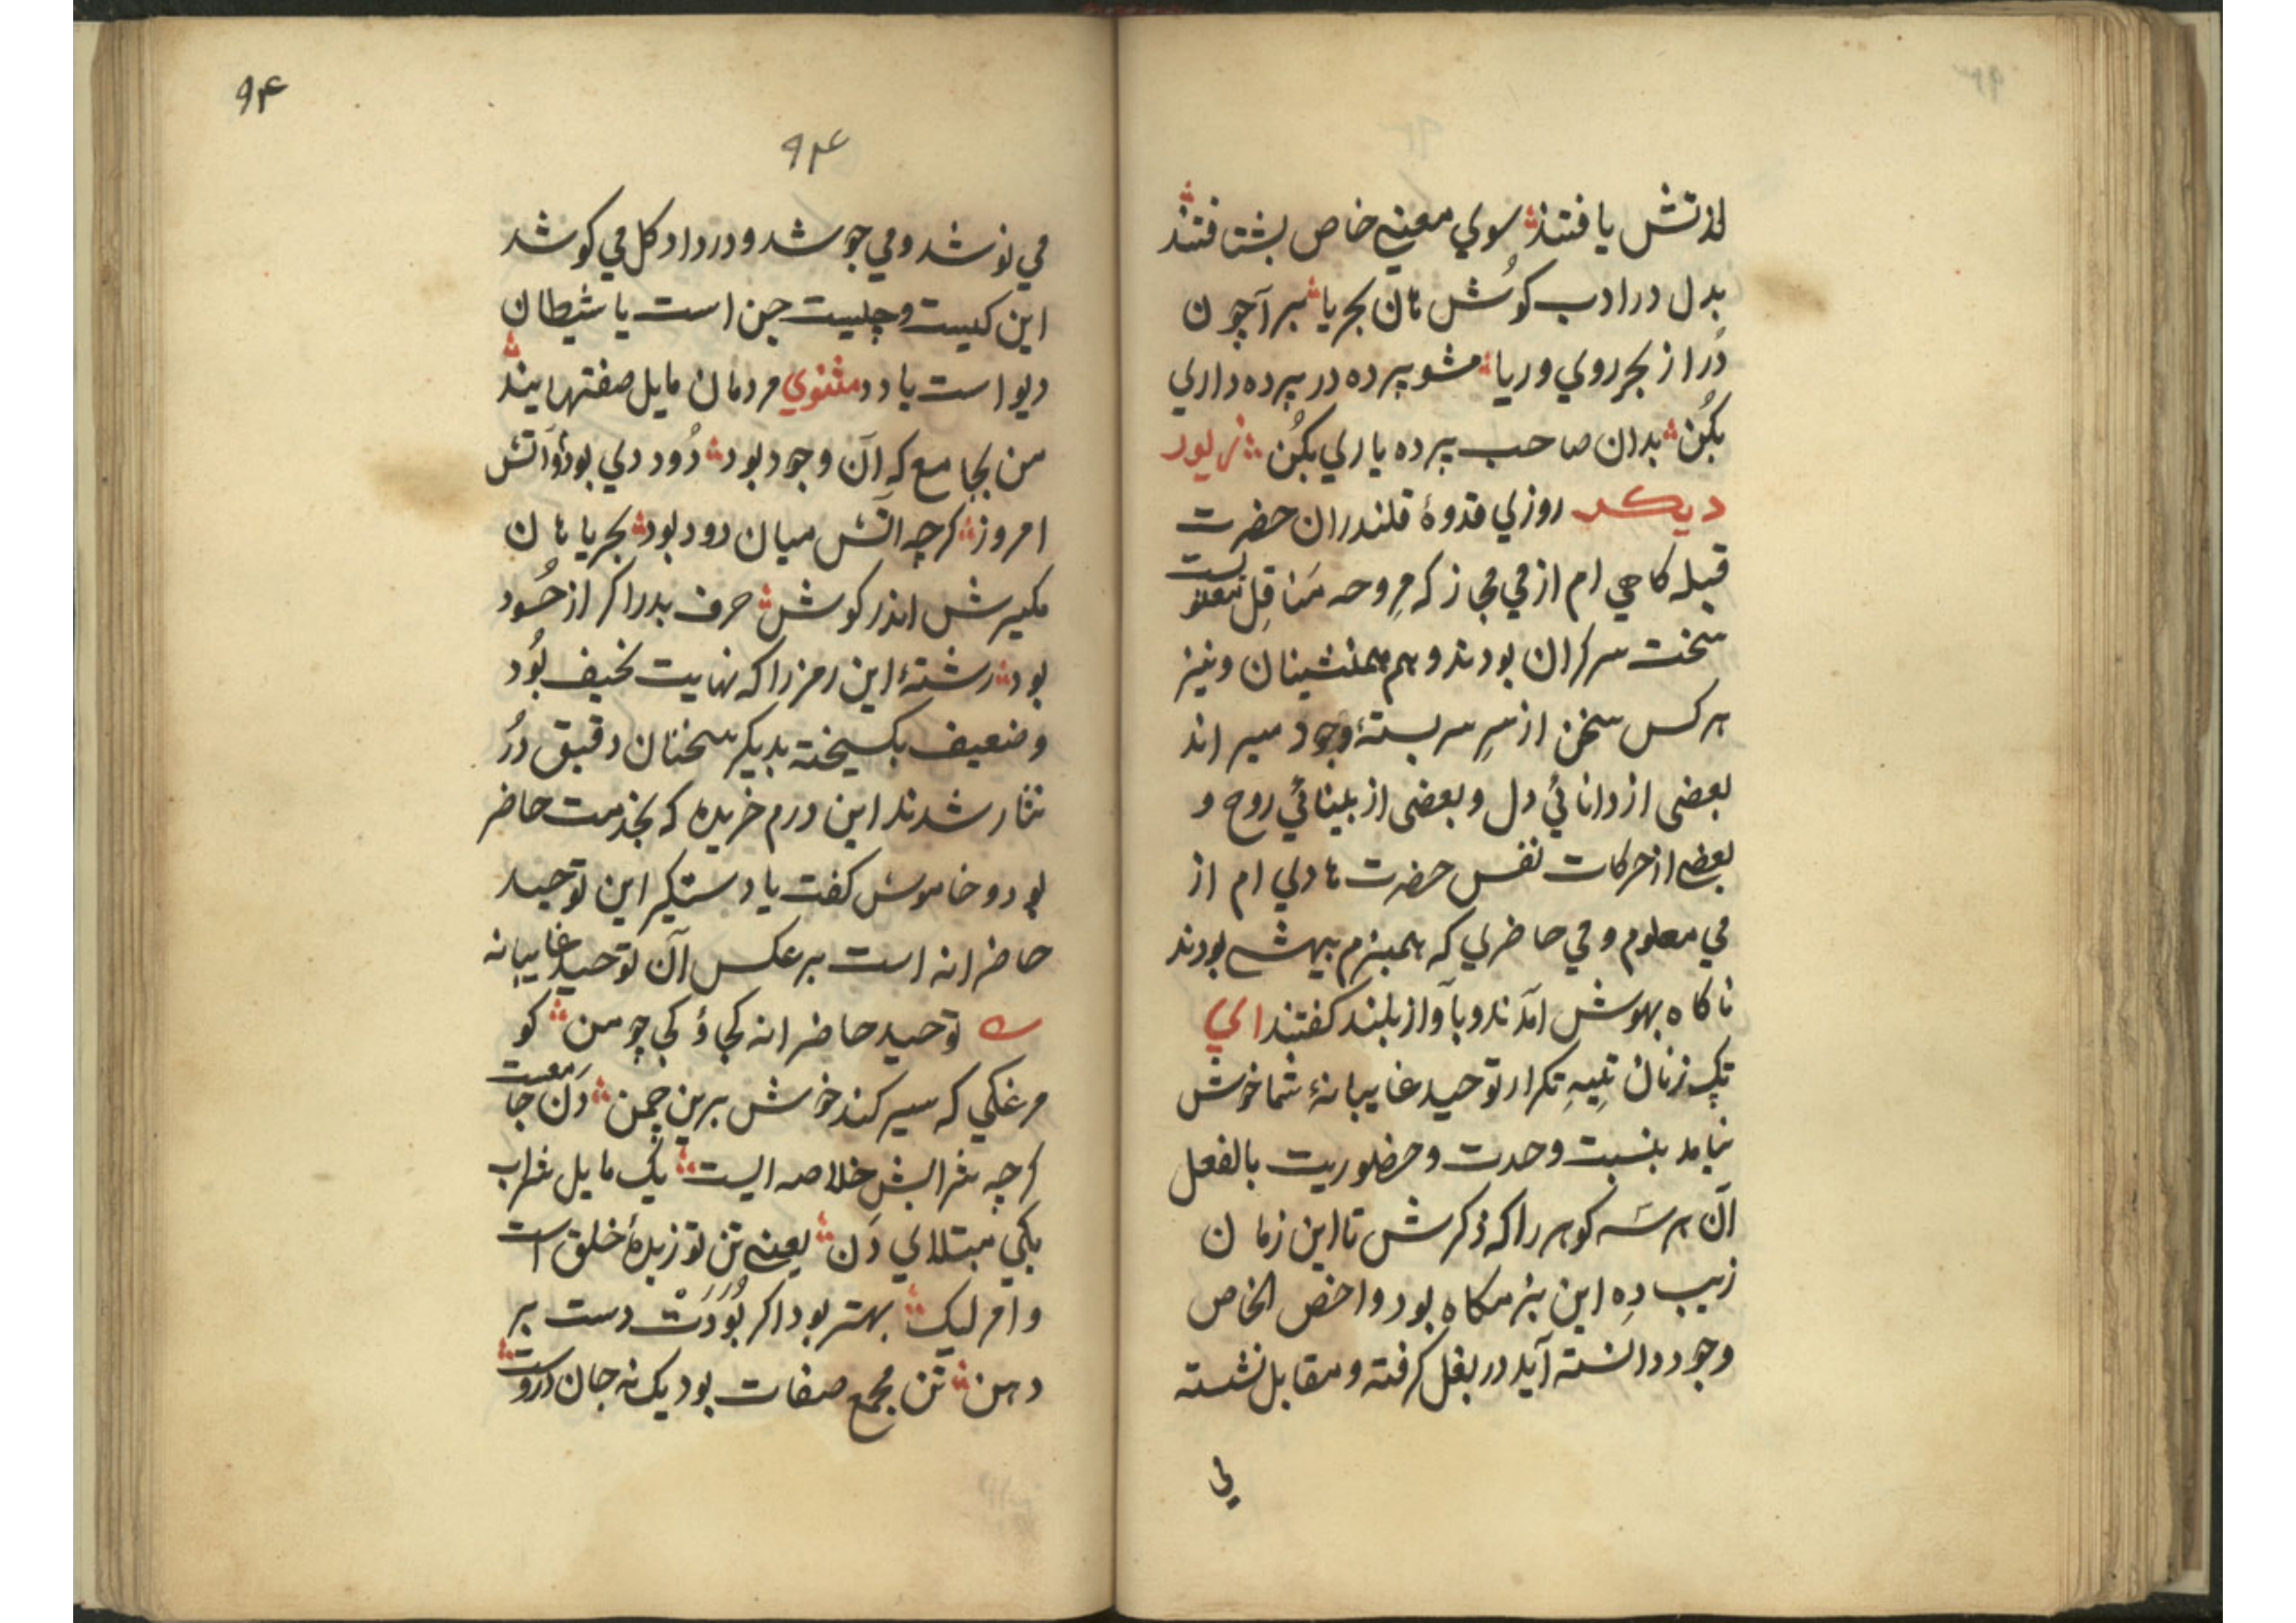 لذتش یافتند سوي معني خاص بشتافتند
بدل در ادب کُوش هان بحریا برآ چون
دُر از بحر روي و ریا مشو پرده در پرده داري
بکُن بدان صاحب پرده یاري بکُن زیور
دیکر روزي قدوهٔ قلندران حضرت
قبله کاهي ام از مي مجاز که مروحه مناقل
سخت سرکران بودند و هم همنشینان و نیز
هر کس سخن از سرِ سر بستهٔ وجود میراند
بعضی از دانائي دل و بعضی از بینائي روح و
بعضی از حرکات نفس حضرت هادي ام از
مي معلوم و مي حاضري که همبزم بیهش بودند
ناکاه بهوش آمدند و بآواز بلند کفتند اي
تپک زنان تکرار توحید غایبانهٔ شما خوش
نیامد بنسبت وحدت و حضوریت بالفعل
آن هر سه کوهر را که ذکرش تا این زمان
زیب دِه این بزمکاه بود و اخص الخاص
وجود دانسته آید در بغل کرفته و مقابل نشسته
مي
۹۴
۹۴
مي نوشد و مي جوشد و در داد کل مي کوشد
این کیست و چیست جن است یا شیطان
دیو است یا دد مثنوي مردمان مایل صفتهایند
من بجامع که آن وجود بود دُود دي بود و آتش
امروز کرچه آتش میان دود بود بحریا هان
مکیرش اندر کوش حرف بد را کر از حُسود
بود رشتهٔ این رمز را که نهایت نحیف بُود
و ضعیف بکسیخته بدیکر سخنان دقیق دُر
نثار شدند این درم خریده که بخدمت حاضر
بود و خاموش کفت یا دستکیر این توحید
حاضرانه است بر عکس آن توحید غایبانه
توحید حاضرانه کجا و کجا چو من کو
مرغکي که سیر کند خوش برین چمن دَن جامعست
کرچه شرابش خلاصه ایست یک مایل شراب
یکي مبتلاي دَن یعني تن تو زبدهٔ خلق است
و امر لیک بهتر بود اکر بُوَدَت دست بر
دهن تن مجمع صفات بود یک نه جان دروست